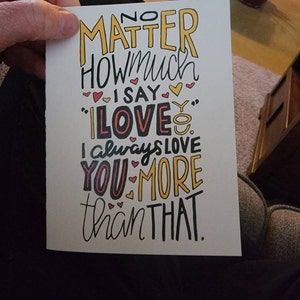 NO
MATTER
HOW much
I SAY
"I LOVE YOU."
I always LOVE
YOU MORE
than THAT.